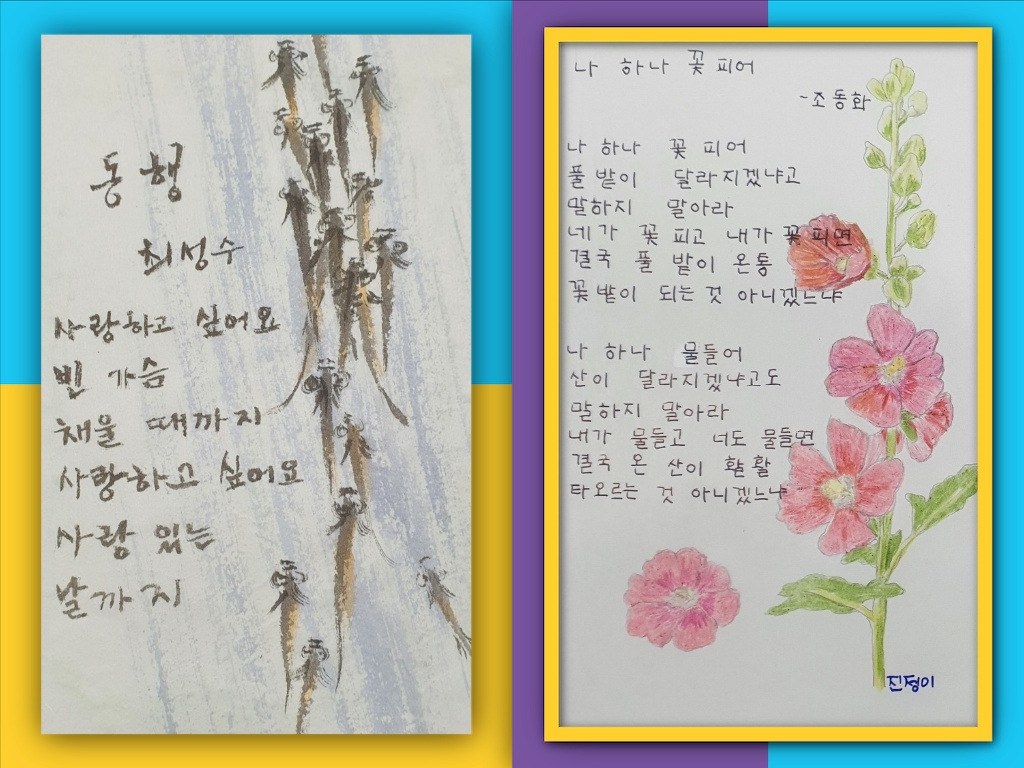 동행
최성수
사랑하고 싶어요
빈 가슴
채울 때까지
사랑하고 싶어요
사랑 있는
날까지
나 하나 꽃 피어
-조동화
나 하나 꽃 피어
풀 밭이 달라지겠냐고
말하지 말아라
네가 꽃 피고 내가 꽃 피면
결국 풀 밭이 온통
꽃 밭이 되는 것 아니겠느냐
나 하나 물들어
산이 달라지겠냐고도
말하지 말아라
내가 물들고 너도 물들면
결국 온 산이 활활
타오르는 것 아니겠느냐
진정이